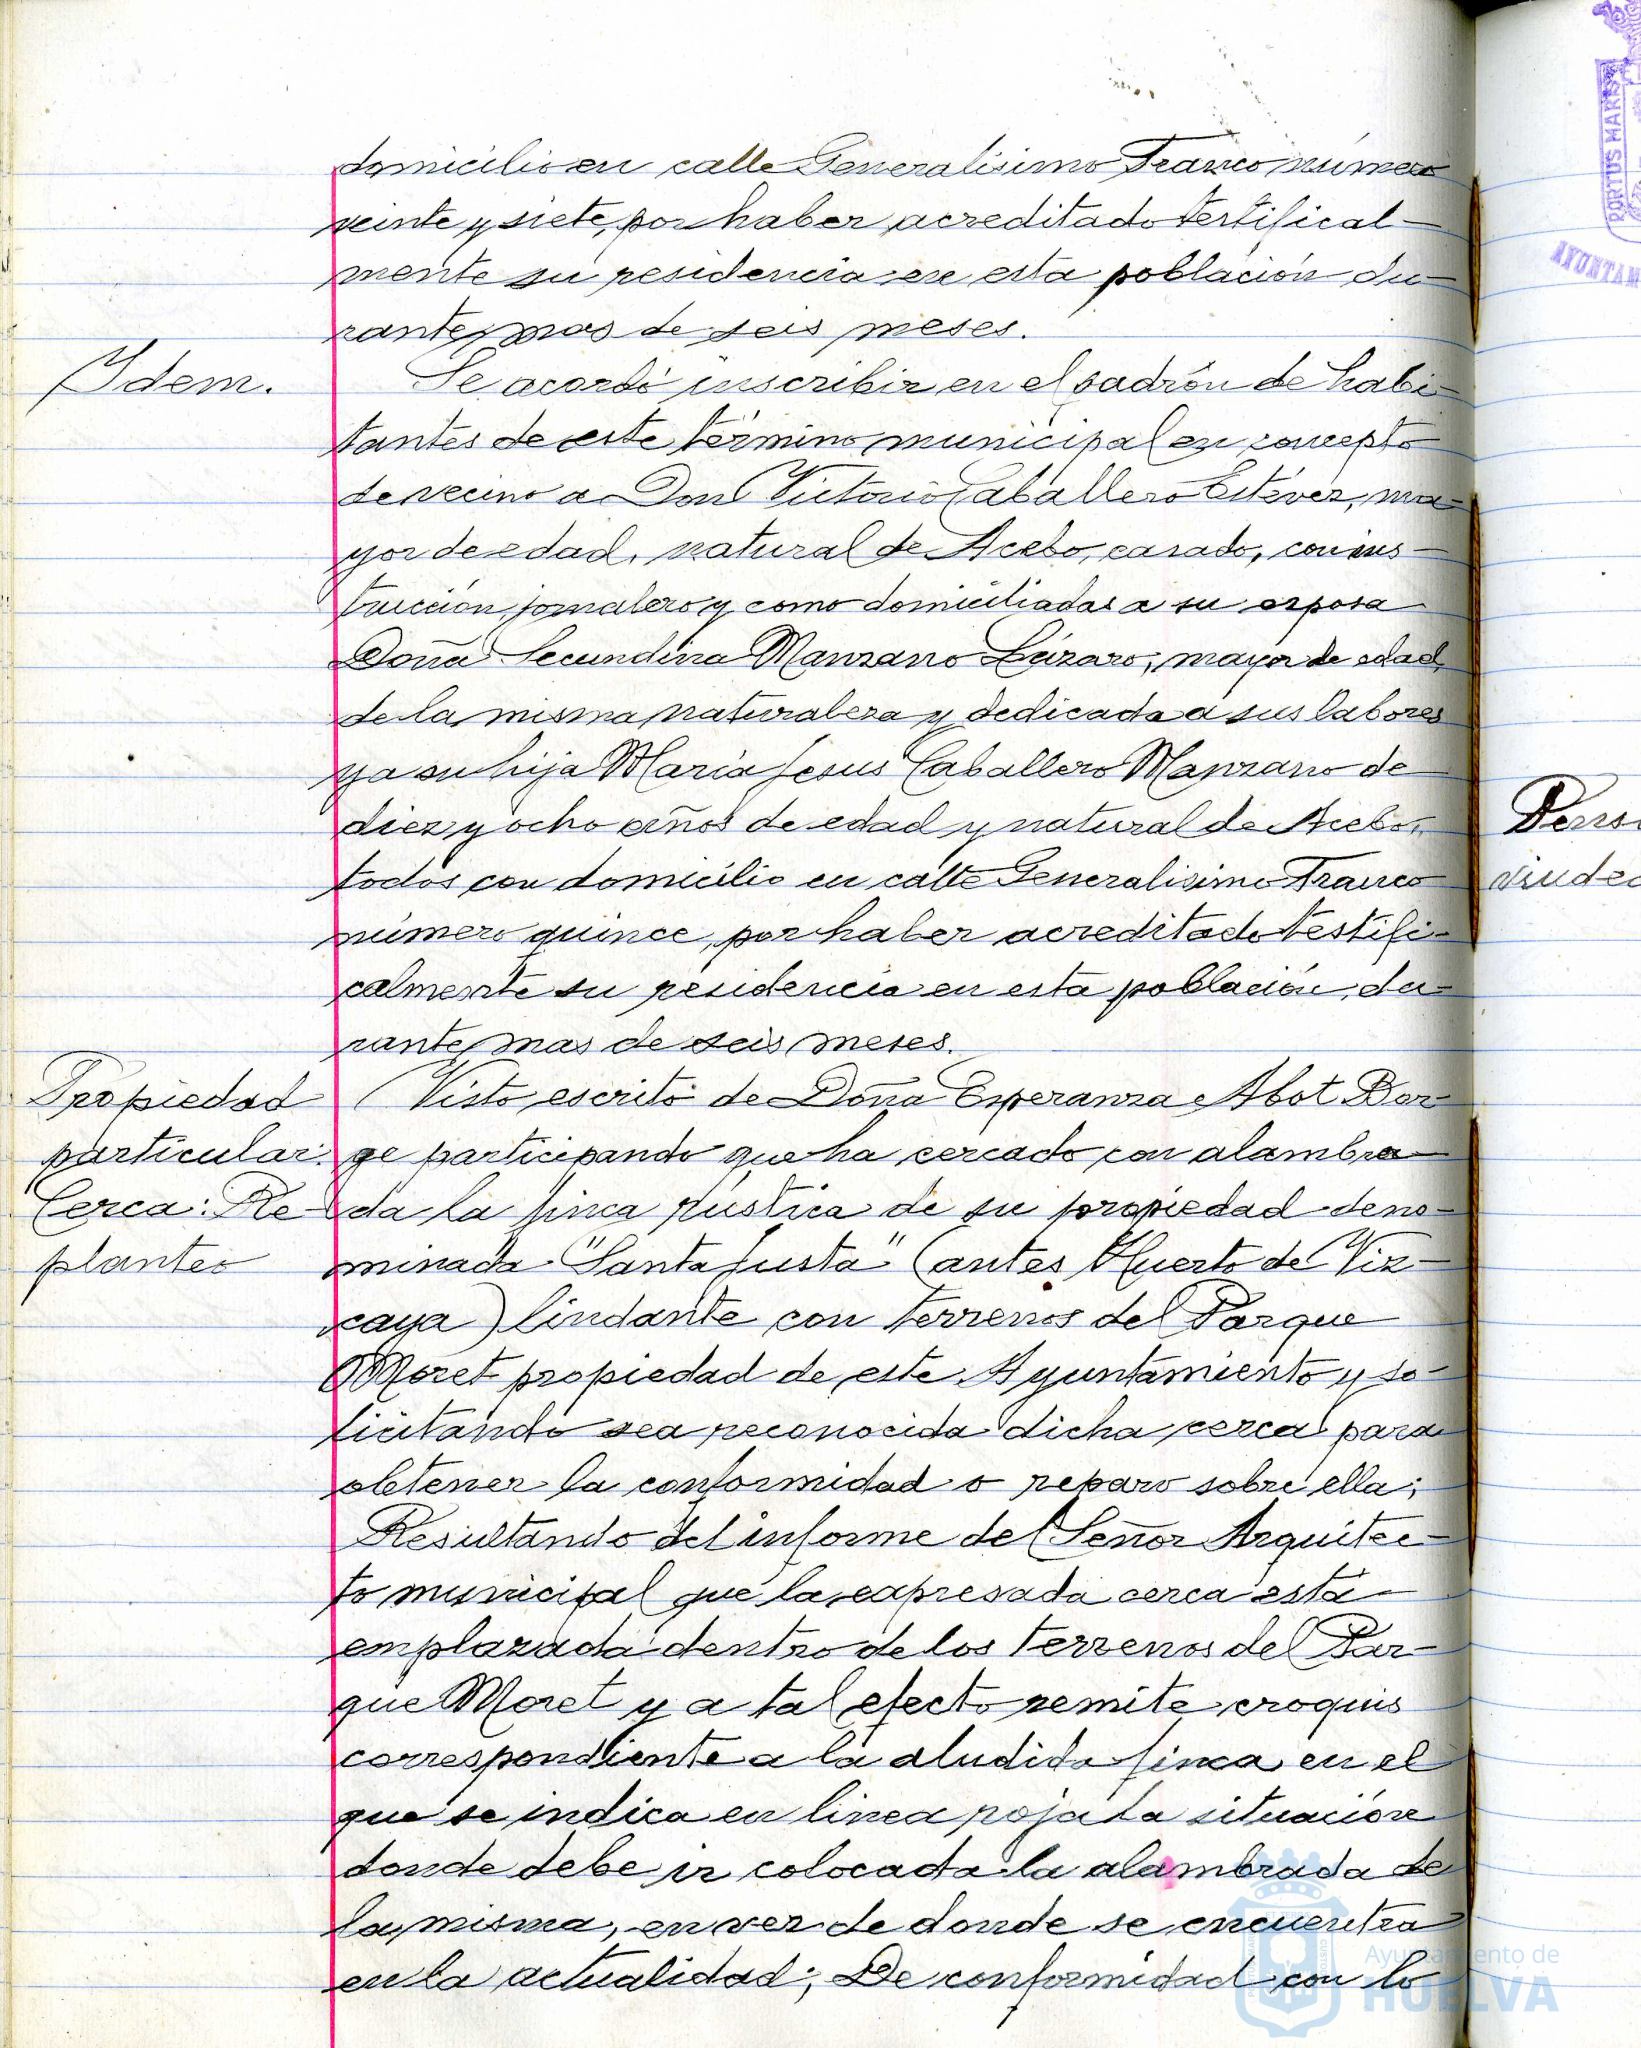 domicilio en calle Generalisimo Franco número
veinte y siete, por haber acreditado tertifical-
mente su residencia en esta población du-
rante mas de seis meses.
Idem.
Se acordó inscribir en el padrón de habi-
tantes de este término municipal en concepto
de vecino a Don Victorio Caballero Estévez, ma-
yor de edad, natural de Acebo, casado, con ins-
trucción, jornalero y como domiciliadas a su esposa
Doña Secundina Manzano Lázaro, mayor de edad,
de la misma naturaleza y dedicada a sus labores
y a su hija María Jesus Caballero Manzano de
diez y ocho años de edad y natural de Acebo,
todos con domicilio en calle Generalisimo Franco
número quince, por haber acreditado testifi-
calmente su residencia en esta población, du-
rante mas de seis meses.
Propiedad
particular.
Cerca: Re-
planteo
Visto escrito de Doña Esperanza Abot Bor-
ge participando que ha cercado con alambra-
da la finca rústica de su propiedad deno-
minada "Santa Justa" (antes Huerto de Viz-
caya) lindante con terrenos del Parque
Moret propiedad de este Ayuntamiento y so-
licitando sea reconocida dicha cerca para
obtener la conformidad o reparo sobre ella;
Resultando del informe del Señor Arquitec-
to municipal que la expresada cerca está
emplazada dentro de los terrenos del Par-
que Moret y a tal efecto remite croquis
correspondiente a la aludida finca en el
que se indica en linea roja la situación
donde debe ir colocada la alambrada de
la misma, en vez de donde se encuentra
en la actualidad; De conformidad con lo
PORTUS MARIS
AYUNTAM
Ayuntamiento de
HUELVA